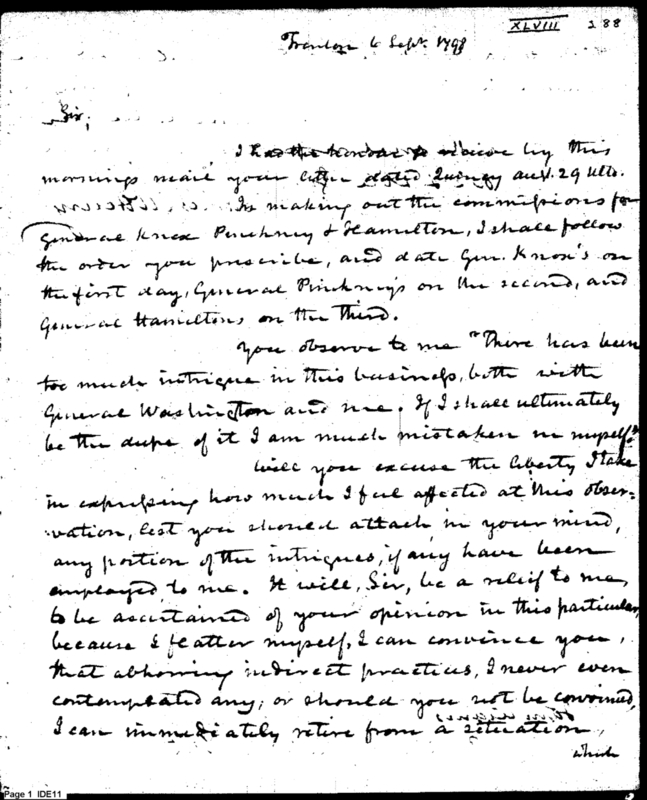 XLVIII 288
Trenton 6 Sept. 1798
Sir,
I had the honour to receive by this
mornings mail your letter dated Quincy aust. 29 Ulto.
In making out the commissions for
General Knox Pinckney & Hamilton, I shall follow
the order you prescribe, and date Gen. Knox's on
the first day, General Pinckney's on the second, and
General Hamiltons on the third.
You observe to me "There has been
too much intrigue in this business, both with
General Washington and me. If I shall ultimately
be the dupe of it I am much mistaken in myself."
Will you excuse the liberty I take
in expressing how much I feel affected at this obser-
vation, lest you should attach in your mind,
any portion of the intrigues, if any have been
employed, to me. It will, Sir, be a relief to me,
to be ascertained of your opinion in this particular,
because I flatter myself, I can convince you,
that abhorring indirect practices, I never even
contemplated any; or should you not be convinced,
I can immediately retire from a situation,
which
Page 1 IDE11